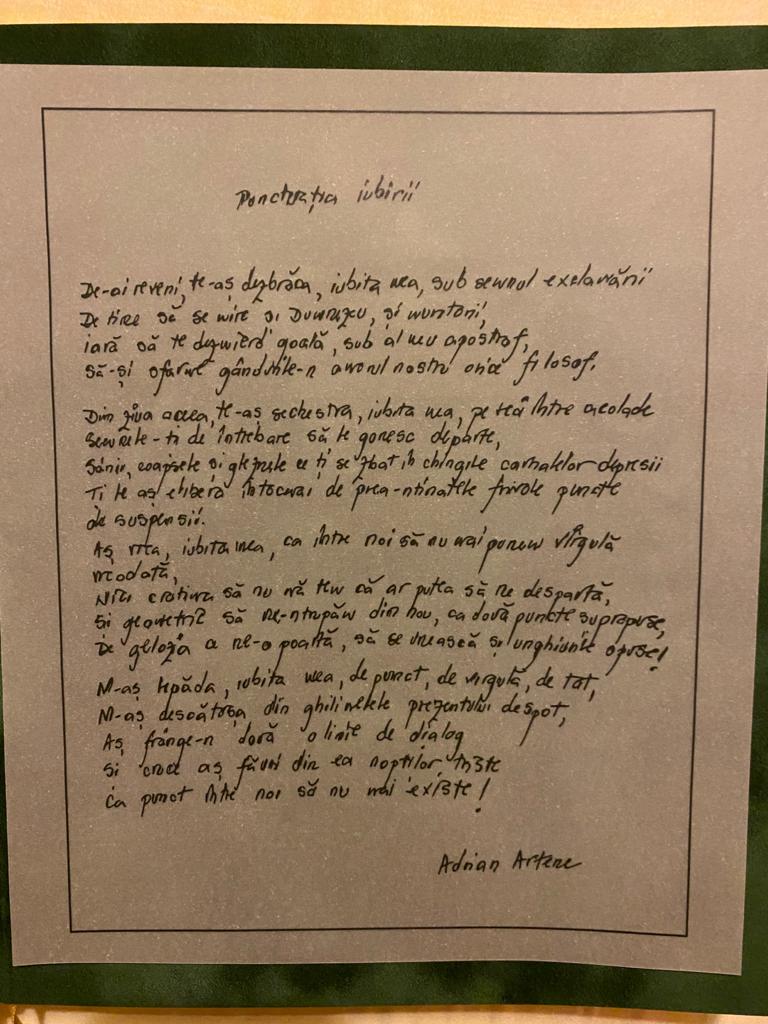 Punctuația iubirii
De-ai reveni, te-aș dezbrăca, iubita mea, sub semnul exclamării
De tine să se mire și Dumnezeu, și muritorii,
iară să te dezmierd goală, sub al meu apostrof,
Să-și sfarme gândurile-n amorul nostru orice filosof.
Din ziua aceea, te-aș sechestra, iubita mea, pe veci între acolade
Semnele-ți de întrebare să le gonesc departe,
Sânii, coapsele și gleznele ce ți se zbat în chingile carnalelor depresii
Ți le aș elibera întocmai de prea-ntinatele frivole puncte
de suspensii.
Aș vrea, iubita mea, ca între noi să nu mai punem virgulă
vreodată,
Nici cratima să nu mă tem că ar putea să ne despartă,
Și geometric să ne-ntrupăm din nou, ca două puncte suprapuse,
De gelozia ce ne-o poartă, să se unească și unghiurile opuse!
M-aș lepăda, iubita mea, de punct, de virgulă, de tot,
M-aș descătușa din ghilimelele prezentului despot,
Aș frânge-n două o linie de dialog
Și cruce aș făuri din ea nopților triste
Ca punct între noi să nu mai existe!
Adrian Artene